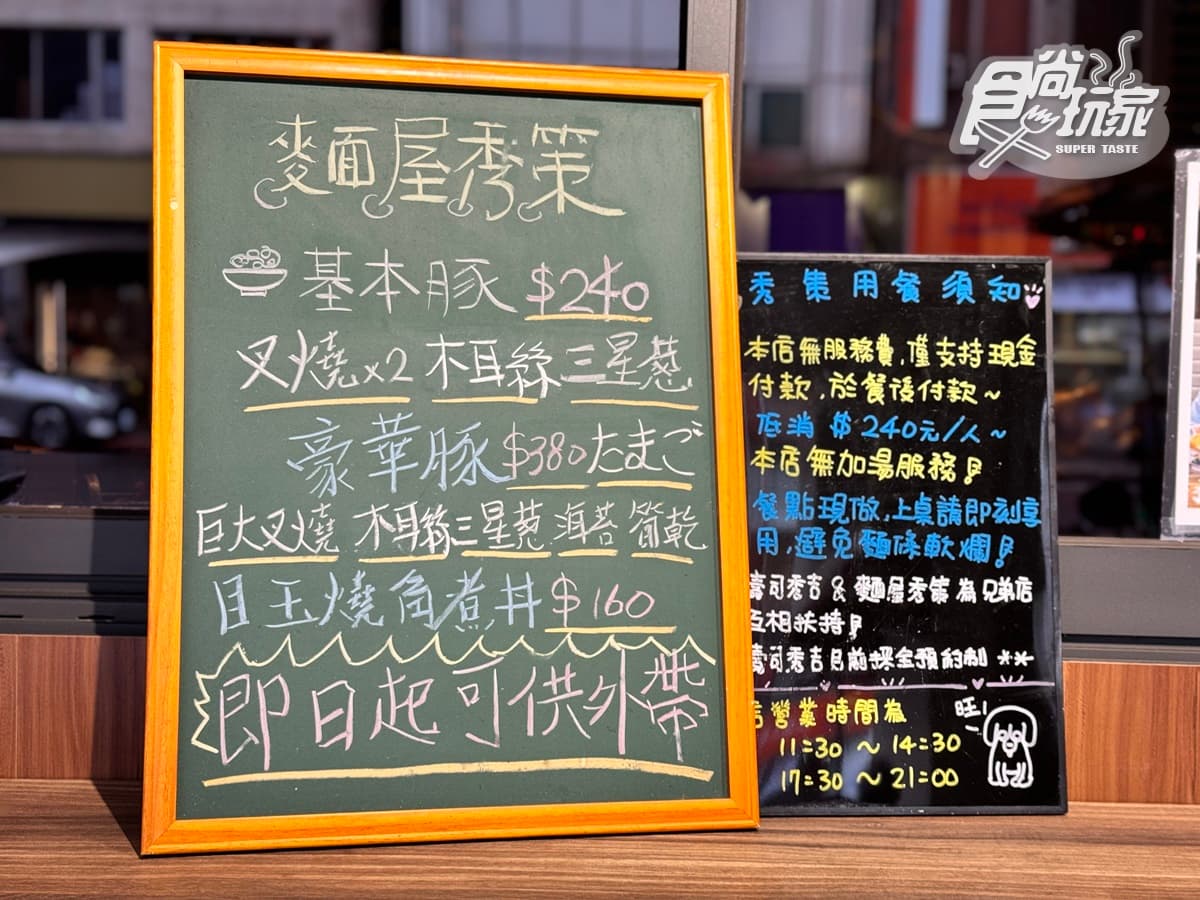 麵面屋秀策
基本豚 $240
叉燒x2 木耳絲 三星蔥
豪華豚 $380 たまご
巨大叉燒 木耳絲 三星蔥 海苔 筍乾
目玉燒角煮丼 $160
即日起可供外帶
食尚玩家
SUPER TASTE
秀集用餐須知
本店無服務費,僅支持現金
付款,於餐後付款~
低消 $240元/人~
本店無加湯服務!
餐點現做,上桌請即刻享
用,避免麵條軟爛!
壽司秀吉 & 麵屋秀集為兄弟店
互相扶持!
壽司秀吉目前採全預約制 **
店營業時間為
旺!
11:30 ~ 14:30
17:30 ~ 21:00